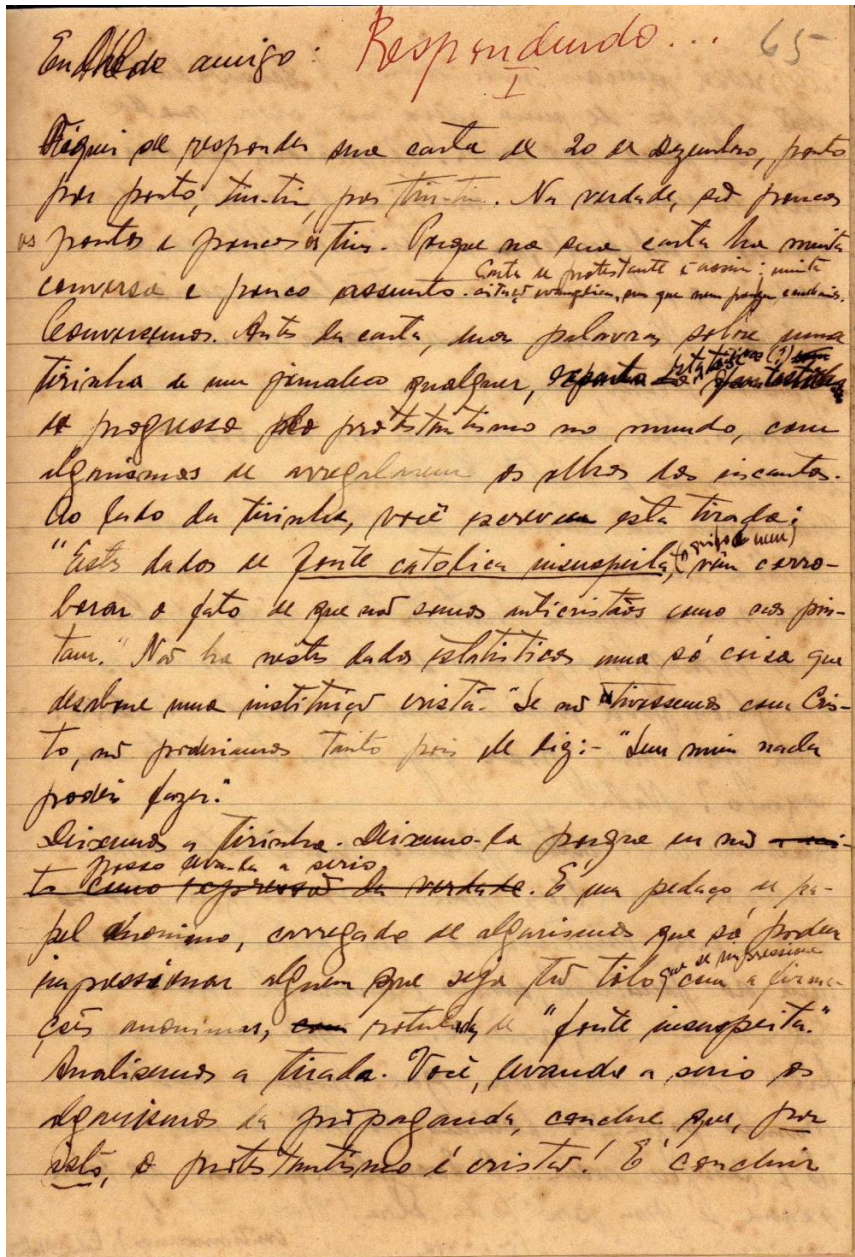 Respondendo... 65
I
amigo:
Fiquei de responder sua carta de 20 de dezembro, ponto
por ponto, tin-tin por tin-tin. Na verdade, são poucos
os pontos e poucos os tins. Porque na sua carta ha muita
conversa e pouco assunto. Carta de protestante é assim: muita
citação evangelica, em que nem
Conversemos. Antes da carta, umas palavras sobre uma
tirinha de um jornaleco qualquer, estatisticas (?)
do progresso do protestantismo no mundo, com
algarismos de arregalarem os olhos dos incautos.
Ao lado da tirinha, você escreveu esta tirada:
"Estes dados de fonte catolica insuspeita, (o grifo é meu) vêm corro-
borar o fato de que não somos anticristãos como nos pin-
tam." Não ha nestes dados estatisticos uma só coisa que
desabone uma instituição cristã. "Se não estivessemos com Cris-
to, não poderiamos tanto pois Ele diz:- "Sem mim nada
podeis fazer."
Deixemos a tirinha. Deixemo-la porque eu não
posso levá-la a serio
to como expressão da verdade. É um pedaço de pa-
pel anonimo, carregado de algarismos que só podem
impressionar alguem que seja tão tolo que se impressione com afirma-
ções anonimas, com rotuladas de "fonte insuspeita."
Analisemos a tirada. Você, levando a serio os
algarismos da propaganda, conclue que, por
isto, o protestantismo é cristão! É concluir